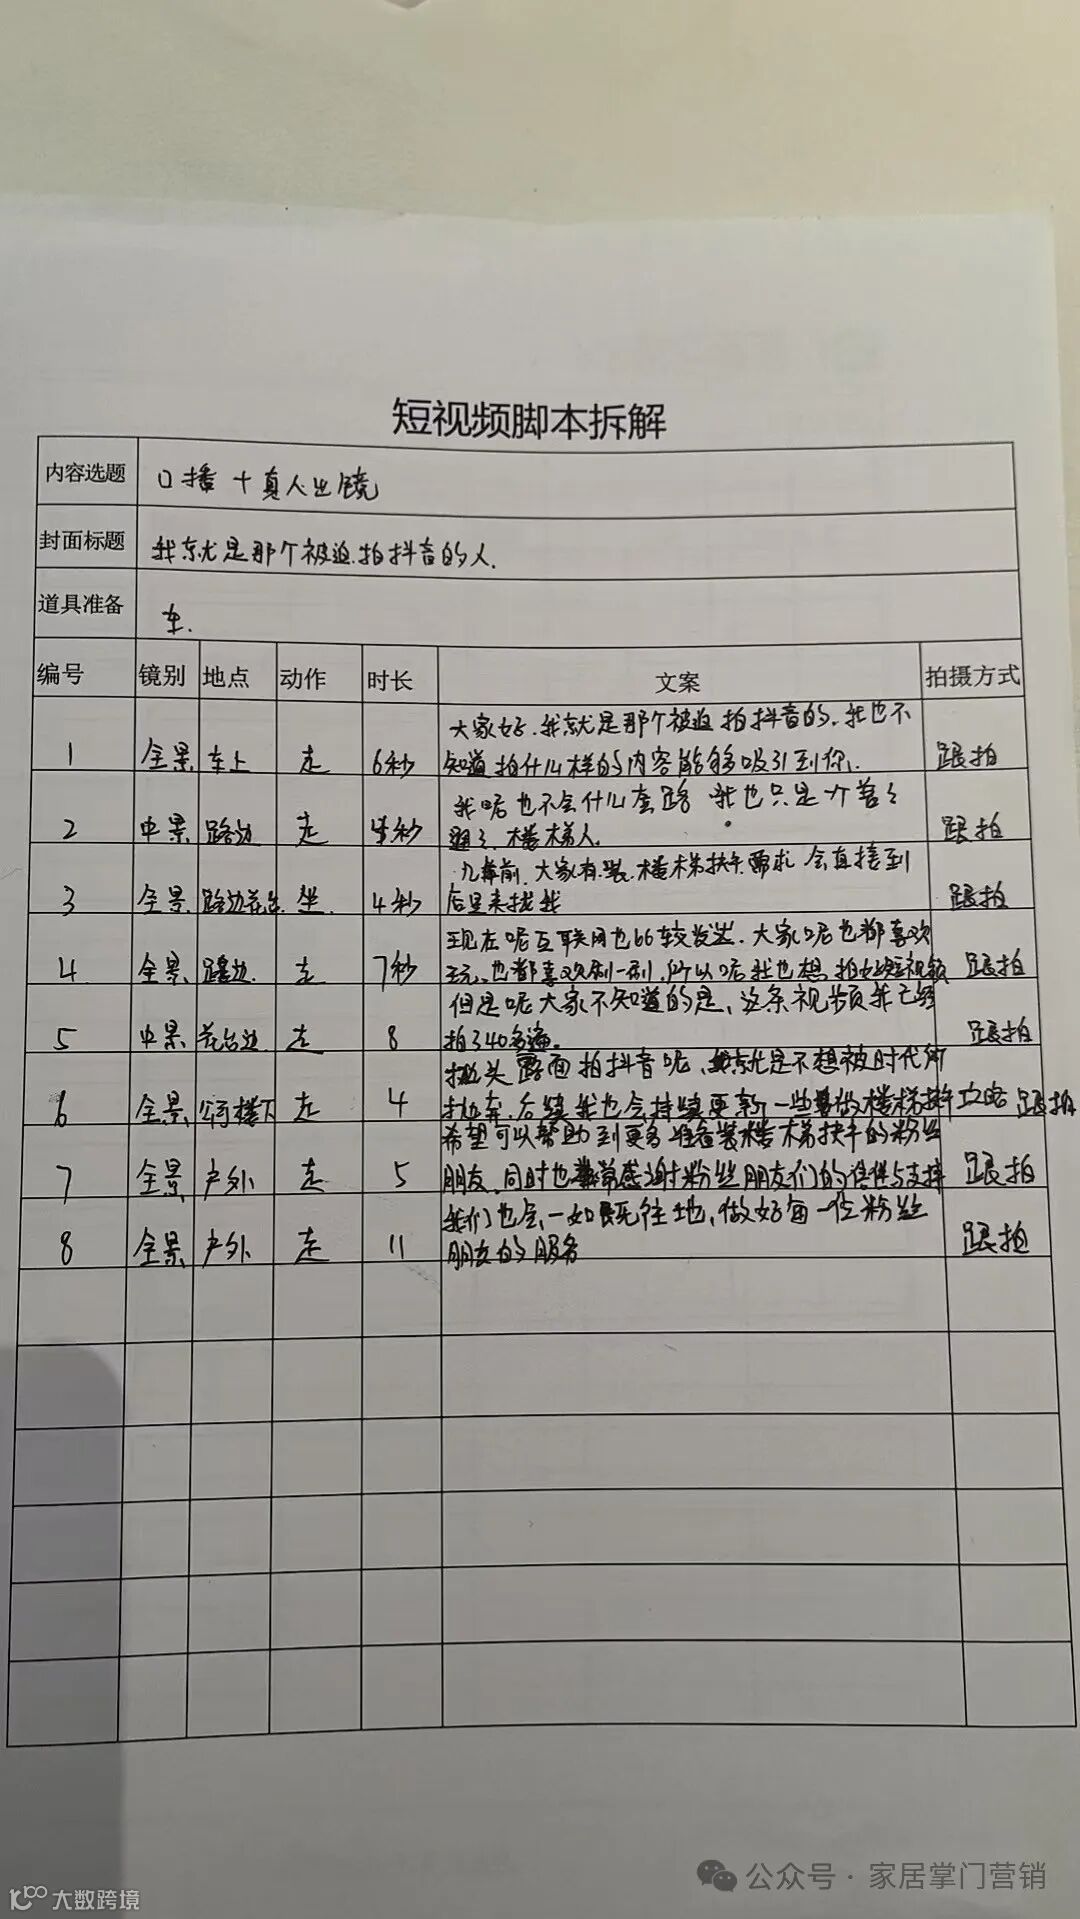 短视频脚本拆解
内容选题 口播+真人出镜
封面标题 我就是那个被迫拍抖音的人.
道具准备 车.
编号 镜别 地点 动作 时长 文案 拍摄方式
大家好.我就是那个被迫拍抖音的.我也不
1 全景 车上 走 6秒 知道拍什么样的内容能够吸引到你. 跟拍
我呢也不会什么套路 我也只是个普普
2 中景 路边 走 秒 通通、楼梯人. 跟拍
几年前.大家有装楼梯扶手需求会直接到
3 全景 路边花台 坐. 4秒 店里来找我 跟拍
现在呢互联网也比较发达.大家呢也都喜欢
4 全景 路边. 走 7秒 玩.也都喜欢刷一刷,所以呢我也想拍好短视频 跟拍
但是呢大家不知道的是、这条视频我已经
5 中景 花台边 走 8 拍了40多遍。 跟拍
抛头露面拍抖音呢、就是不想被时代所
6 全景 公司楼下 走 4 抛弃.后续我也会持续更新一些做楼梯攻略 跟拍
希望可以帮助到更多准备装楼梯扶手的粉丝
7 全景 户外 走 5 朋友.同时也感谢粉丝朋友们的信任与支持 跟拍
我们也会一如既往地,做好每一位粉丝
8 全景 户外 走 11 朋友的服务 跟拍
公众号·家居掌门营销
大数跨境